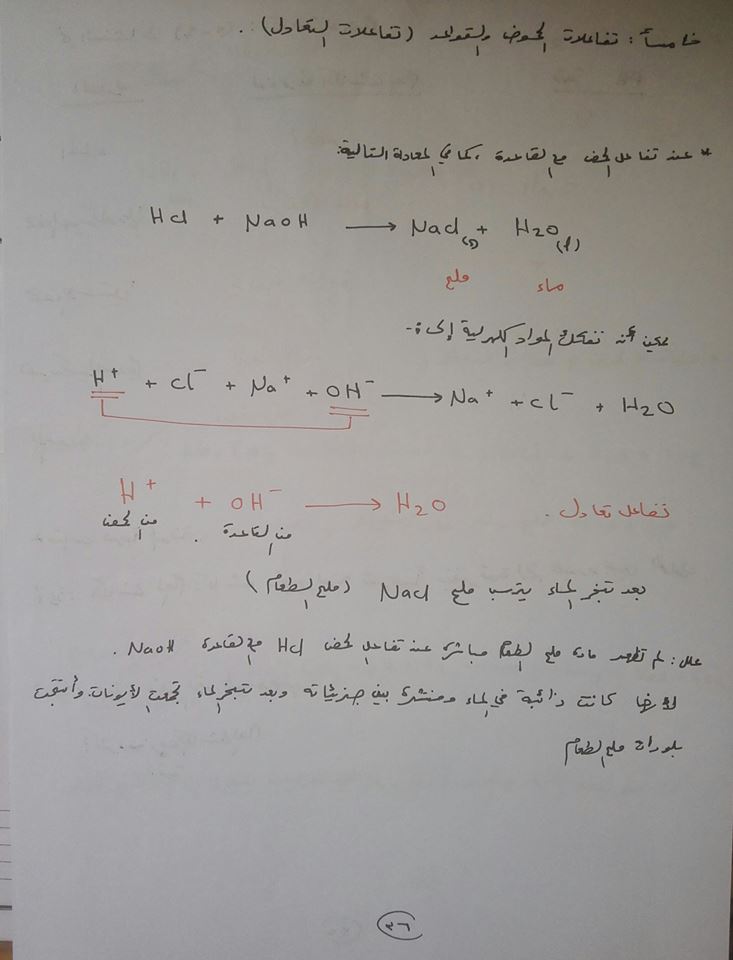 خامساً : تفاعلات الحموض والقواعد (تفاعلات التعادل) .
* عند تفاعل الحمض مع القاعدة ، كما في المعادلة التالية:
HCl + NaOH → NaCl(s) + H2O(l)
ملح ماء
يمكن أن تتفكك المواد الكهرلية إلى :-
H+ + Cl- + Na+ + OH- → Na+ + Cl- + H2O
H+ + OH- → H2O تفاعل تعادل .
من الحمض من القاعدة .
بعد تبخر الماء يترسب ملح NaCl (ملح الطعام)
علل : لم تظهر مادة ملح الطعام مباشرة عند تفاعل الحمض HCl مع القاعدة NaOH .
لأنها كانت ذائبة في الماء ومنتشرة بين جزيئاته وبعد تبخر الماء تجمعت الأيونات وأنتجت
بلورات ملح الطعام
٣٦